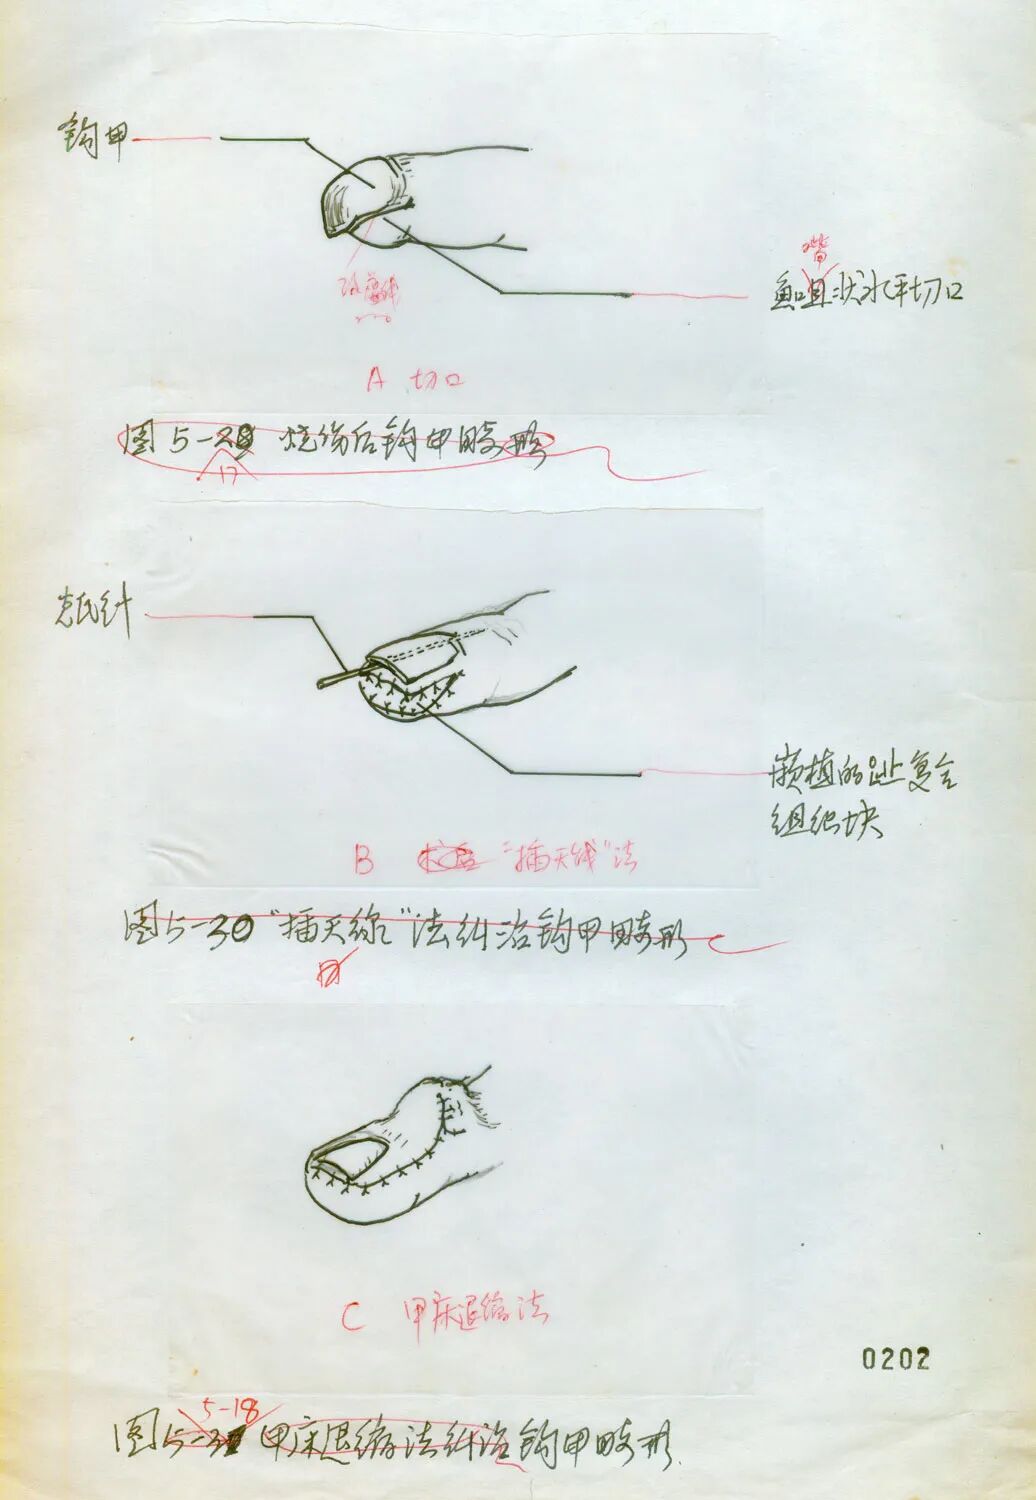 钩甲
嘴
鱼口状水平切口
A 切口
图5-28 烧伤后钩甲畸形
17
克氏针
嵌植的趾复合
组织块
B "插天线"法
图5-30 "插天线"法纠治钩甲畸形
C 甲床退缩法
0202
5-18
图5-31 甲床退缩法纠治钩甲畸形